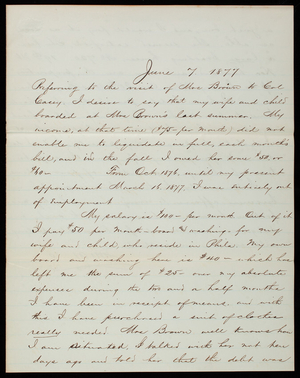 June 7 1877
Referring to the visit of Mrs Brown to Col
Casey. I desire to say that my wife and child
boarded at Mrs Brown's last summer. My
income, at that time ($75 per month) did not
enable me to liquidate in full, each month's
bill, and in the fall I owed her some $50 or
$60 — From Oct 1876, until my present
appointment March 16 1877. I was entirely out
of Employment
My salary is $100 — per month. Out of it
I pay $50 per month — board & washing — for my
wife and child, who reside in Phila. My own
board and washing here is $40 — which has
left me the sum of $25 — over my absolute
expenses during the two and a half months
I have been in receipt of means, and with
this I have purchased a suit of clothes
really needed. Mrs Brown well knows how
I am situated, I talked with her not ten
days ago and told her that the debt was